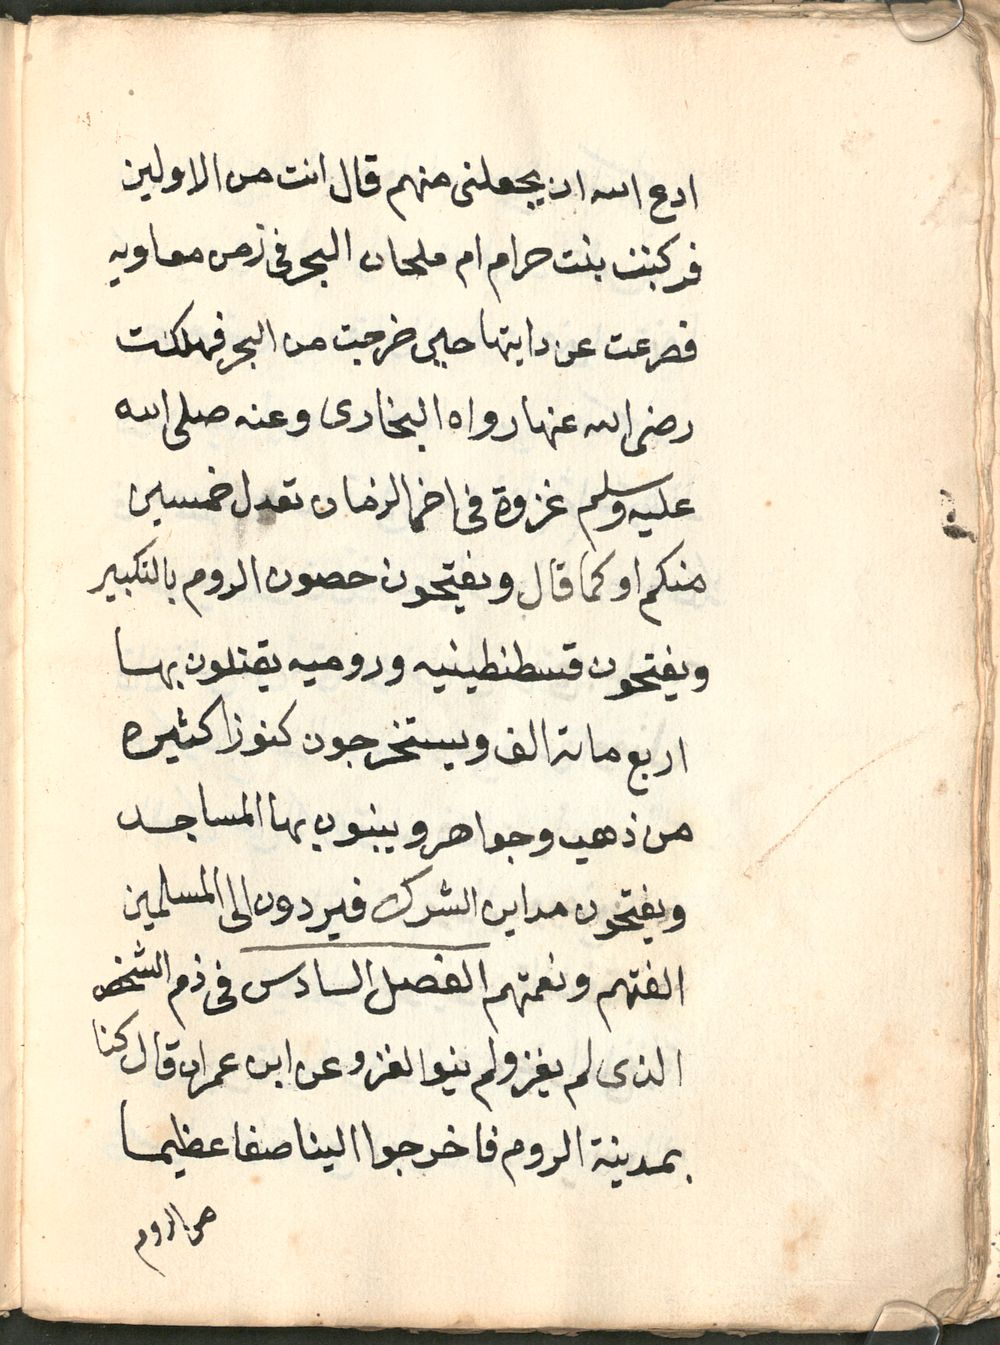 ادع الله ان يجعلنى منهم قال انت من الاولين
فركبت بنت حرام ام ملحان البحر فى زمن معاويه
فصرعت عن دابتها حين خرجت من البحر فهلكت
رضى الله عنها رواه البخارى وعنه صلى الله
عليه وسلم غزوة فى اخر الزمان تعدل خمسين
منكم او كما قال ويفتحون حصون الروم بالتكبير
ويفتحون قسطنطينيه وروميه يقتلون بها
اربع مائة الف ويستخرجون كنوزا كثيره
من ذهب وجواهر ويبنون بها المساجد
ويفتحون مداين الشرك فيردون الى المسلمين
الفتهم ونعمتهم الفصل السادس فى ذم الشخص
الذى لم يغز ولم ينوا الغزو عن ابن عمران قال كنا
بمدينة الروم فاخرجوا الينا صفا عظيما
من الروم